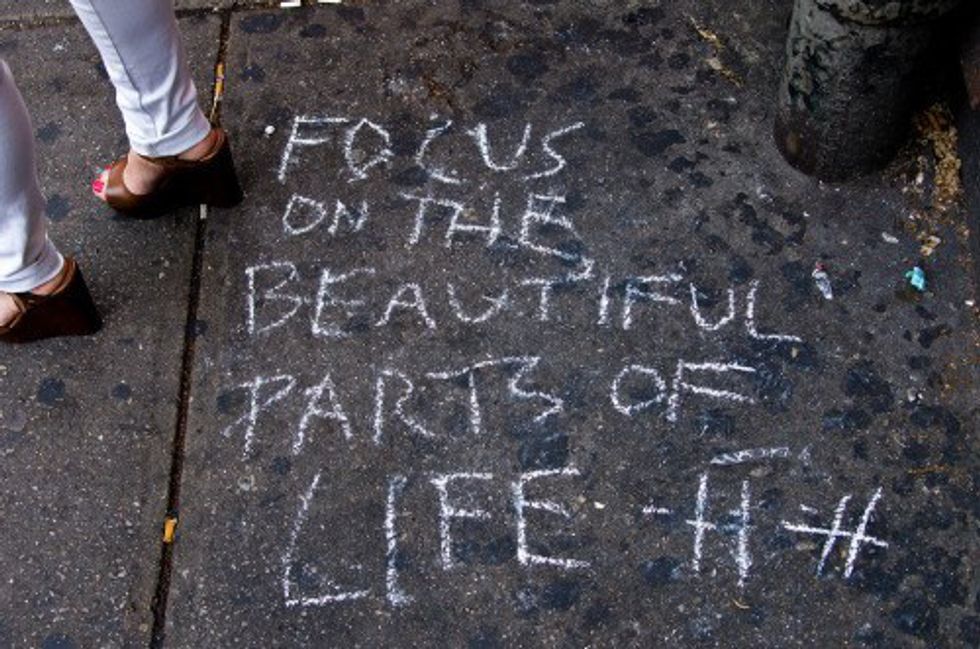 FOCUS
ON THE
BEAUTIFUL
PARTS OF
LIFE